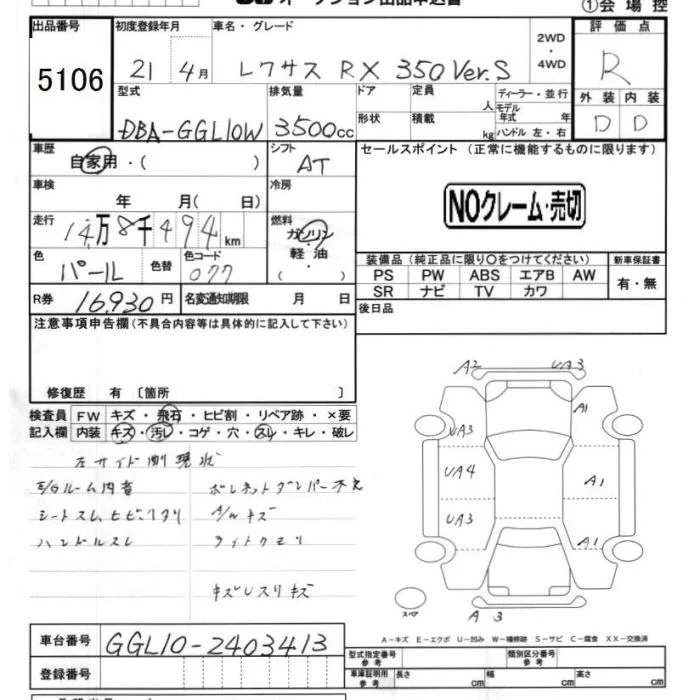 ①会場控
出品番号 初度登録年月 車名・グレード 評価点
5106 21 4月 レクサス RX 350 Ver.S 2WD・4WD R
型式 排気量 ドア 定員 人 ディーラー・並行 外装 内装
DBA-GGL10W 3500cc 形状 積載 kg モデル年式 年 ハンドル 左・右 D D
車歴 シフト セールスポイント (正常に機能するものに限ります)
自家用・( ) AT
車検 冷房
年 月( 日) NOクレーム・売切
走行 燃料
14万8千494km ガソリン・軽油・( )
色 色替 色コード 装備品(純正品に限り○をつけてください) 新車保証書
パール 077 PS PW ABS エアB AW 有・無
SR ナビ TV カワ
R券 16,930円 名変通知期限 月 日 後日品
注意事項申告欄(不具合内容等は具体的に記入して下さい)
修復歴 有〔箇所 〕
検査員 FW キズ・飛石・ヒビ割・リペア跡・×要
記入欄 内装 キズ・汚レ・コゲ・穴・スレ・キレ・破レ
A2 UA3
A1
UA3
UA4 A1
UA3
A1
A3
スペア
左サイド 現状
E/Gルーム内音 ボンネットダンパー不良
シートスレ、ヒビ A/Wキズ
ハンドルスレ ライトクモリ
キズ スリキズ
A-キズ E-エクボ U-凹み W-補修跡 S-サビ C-腐食 XX-交換済
車台番号 GGL10-2403413 型式指定番号 参考 類別区分番号 参考
登録番号 車庫証明用 参考 長さ cm 幅 cm 高さ cm